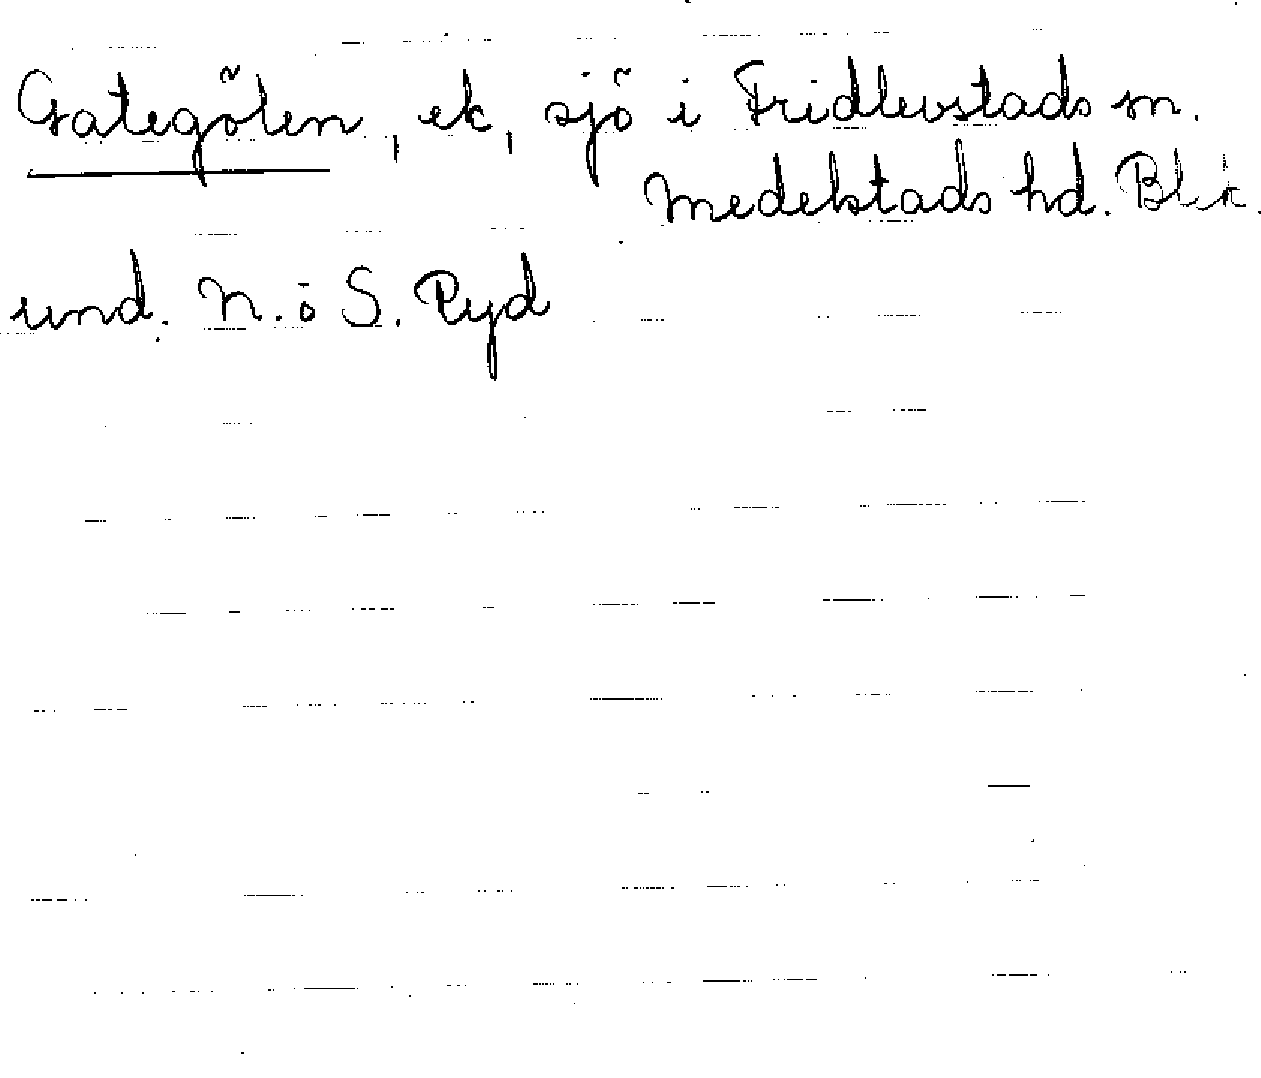 Gategölen, ek, sjö i Fridlevstads sn.
Medelstads hd. Blek.
und. N. o S. Ryd